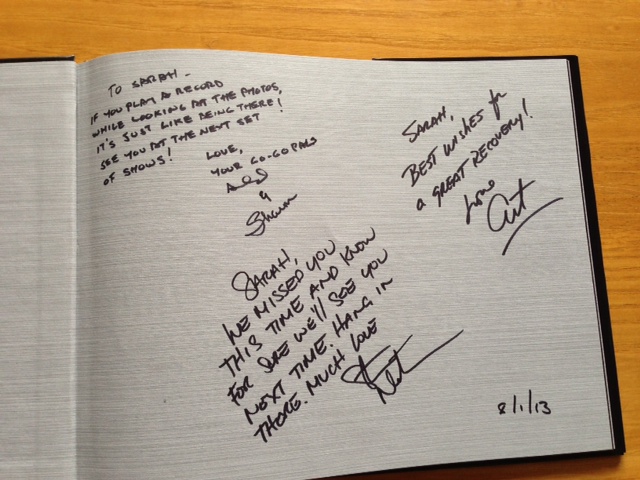 TO SARAH -
IF YOU PLAY A RECORD
WHILE LOOKING AT THE PHOTOS,
IT'S JUST LIKE BEING THERE!
SEE YOU AT THE NEXT SET
OF SHOWS!
LOVE,
YOUR GO-GO PALS
&
Shawn
SARAH,
BEST WISHES for
a GREAT RECOVERY!
Love
Art
SARAH,
WE MISSED YOU
THIS TIME AND KNOW
FOR SURE WE'll SEE YOU
NEXT TIME. HANG IN
THERE. MUCH LOVE
8/1/13